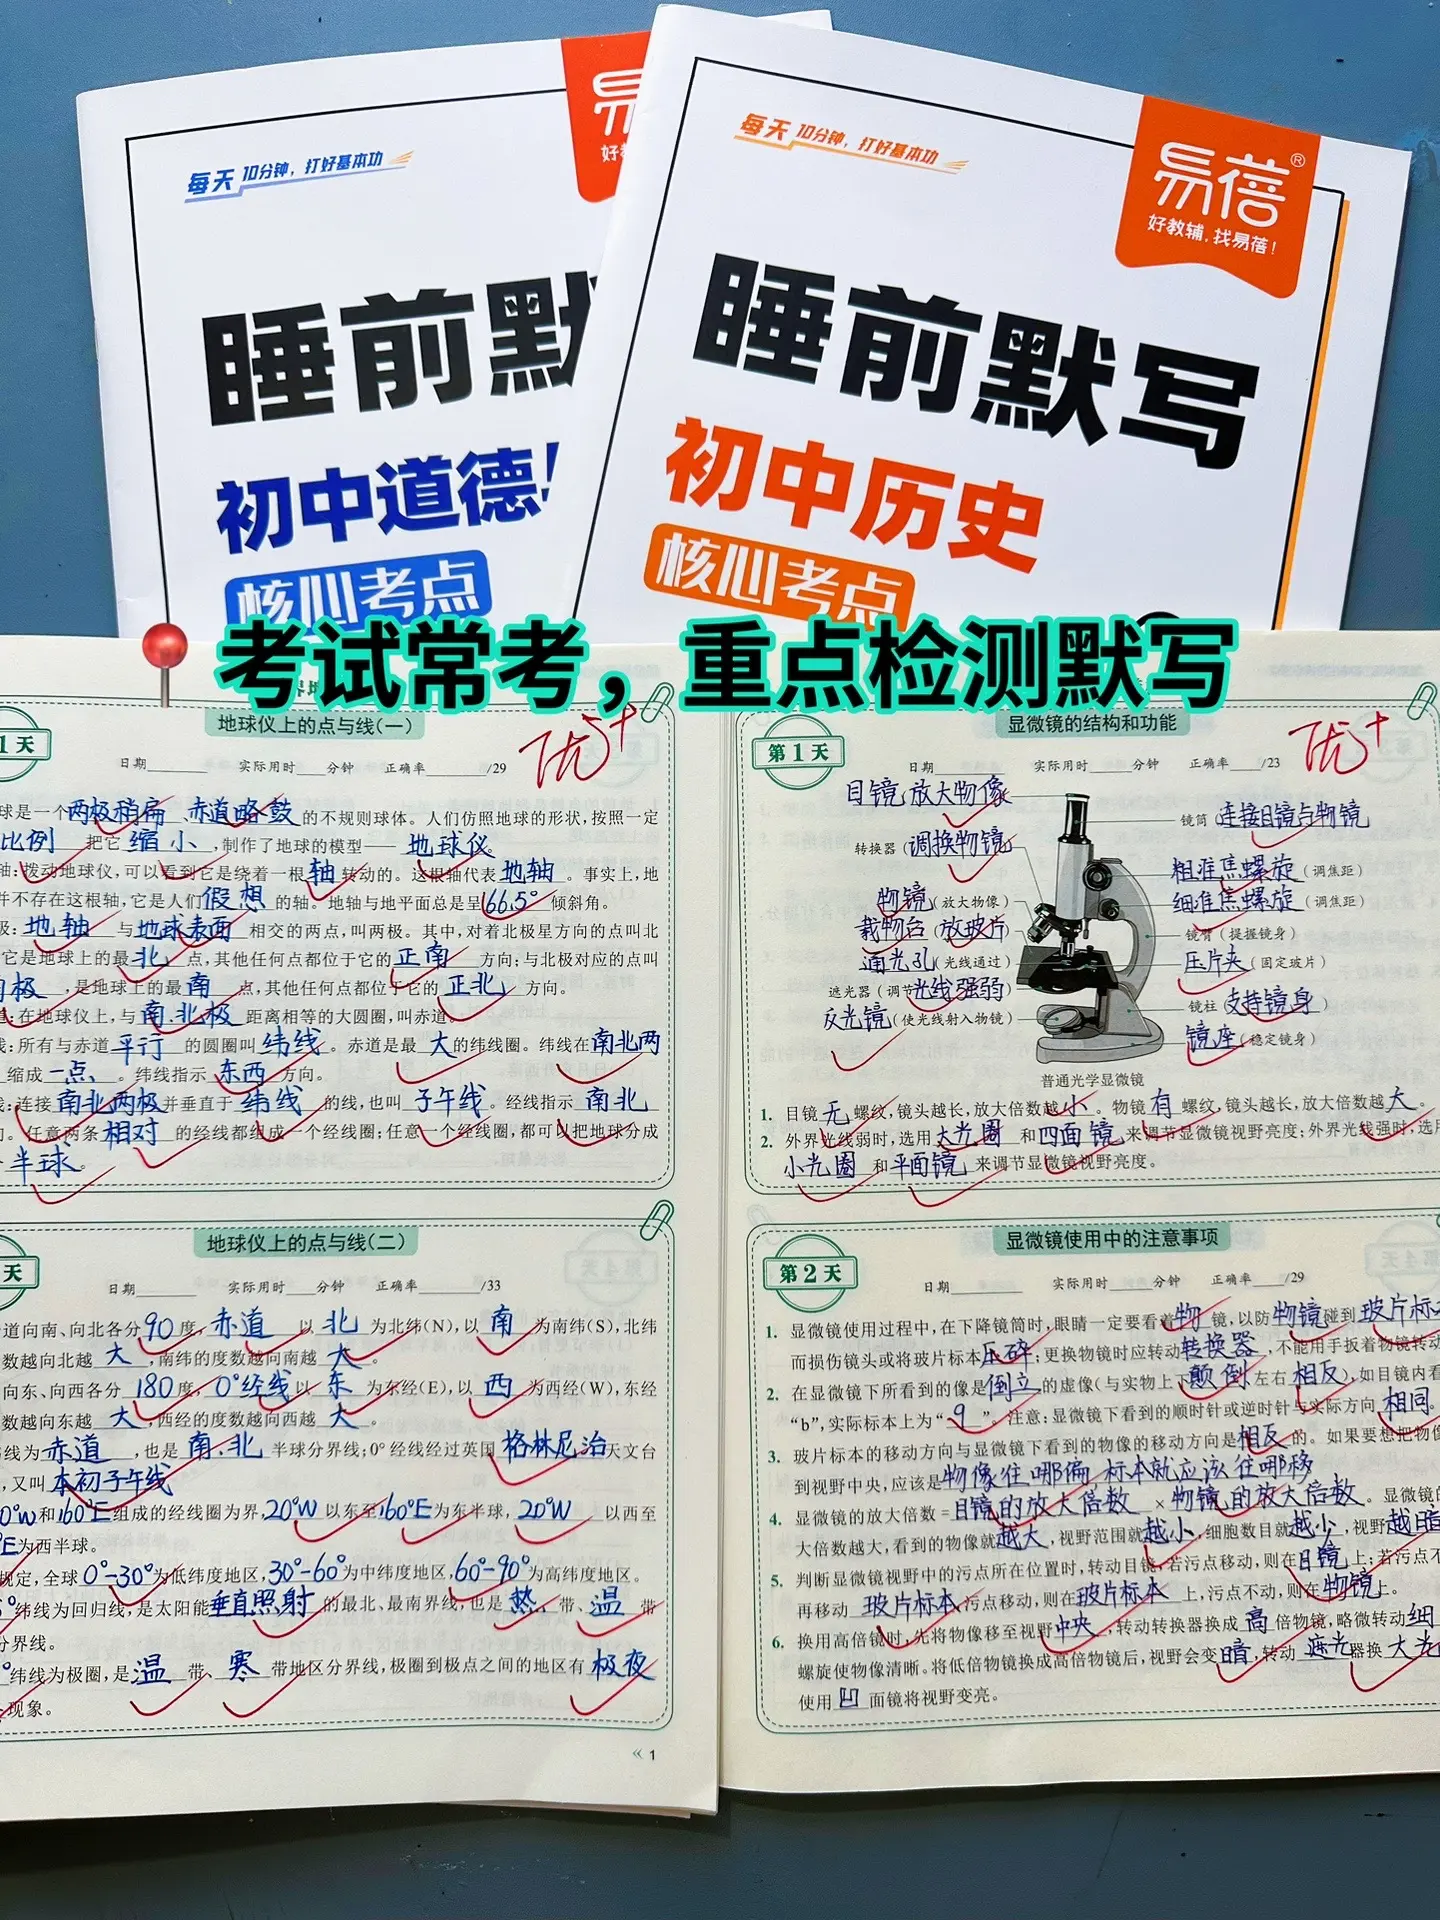 每天 10分钟，打好基本功
易
好教
睡前默
初中道德
核心考点
每天 10分钟，打好基本功
易蓓®
好教辅，找易蓓！
睡前默写
初中历史
核心考点
考试常考，重点检测默写
地球仪上的点与线(一)
1天
优+
日期 实际用时 分钟 正确率 /29
球是一个两极稍扁、赤道略鼓的不规则球体。人们仿照地球的形状，按照一定
比例 把它 缩小 ，制作了地球的模型— 地球仪。
轴：拨动地球仪，可以看到它是绕着一根轴转动的。这根轴代表地轴。事实上，地
并不存在这根轴，它是人们假想的轴。地轴与地平面总是呈66.5°倾斜角。
极：地轴 与地球表面 相交的两点，叫两极。其中，对着北极星方向的点叫北
它是地球上的最北点，其他任何点都位于它的正南 方向；与北极对应的点叫
极 ，是地球上的最南 点，其他任何点都位于它的正北方向。
：在地球仪上，与南.北极 距离相等的大圆圈，叫赤道。
线：所有与赤道平行 的圆圈叫纬线。赤道是最大的纬线圈。纬线在南北两
缩成一点 。纬线指示东西方向。
线：连接南北两极并垂直于纬线 的线，也叫子午线。经线指示南北
。任意两条相对 的经线都组成一个经线圈；任意一个经线圈，都可以把地球分成
半球。
地球仪上的点与线(二)
天
日期 实际用时 分钟 正确率 /33
道向南、向北各分90度，赤道 以 北 为北纬(N)，以 南 为南纬(S)，北纬
数越向北越 大 ，南纬的度数越向南越 大 。
向东、向西各分180度，0°经线以 东 为东经(E)，以 西 为西经(W)，东经
数越向东越 大 ，西经的度数越向西越 大 。
线为赤道 ，也是南.北半球分界线；0°经线经过英国格林尼治天文台
，又叫本初子午线
0°W和160°E组成的经线圈为界，20°W以东至160°E为东半球，20°W 以西至
°E为西半球。
规定，全球0°-30°为低纬度地区，30°-60°为中纬度地区，60°-90°为高纬度地区。
°纬线为回归线，是太阳能垂直照射的最北、最南界线，也是热带、温带
分界线。
°纬线为极圈，是温带、寒带地区分界线，极圈到极点之间的地区有极夜
现象。
« 1
显微镜的结构和功能
第1天
优+
日期 实际用时 分钟 正确率 /23
目镜(放大物像
镜筒(连接目镜与物镜
转换器(调换物镜
粗准焦螺旋(调焦距)
物镜(放大物像)
细准焦螺旋(调焦距)
载物台(放玻片
镜臂(提握镜身)
通光孔(光线通过)
压片夹(固定玻片)
遮光器(调节光线强弱)
镜柱(支持镜身)
反光镜(使光线射入物镜)
镜座(稳定镜身)
普通光学显微镜
1. 目镜无螺纹，镜头越长，放大倍数越小。物镜有螺纹，镜头越长，放大倍数越大。
2. 外界光线弱时，选用大光圈 和凹面镜来调节显微镜视野亮度；外界光线强时，选用
小光圈 和平面镜 来调节显微镜视野亮度。
显微镜使用中的注意事项
第2天
日期 实际用时 分钟 正确率 /29
1. 显微镜使用过程中，在下降镜筒时，眼睛一定要看着物镜，以防物镜碰到玻片标本
而损伤镜头或将玻片标本压碎；更换物镜时应转动转换器，不能用手扳着物镜转动
2. 在显微镜下所看到的像是倒立的虚像(与实物上下颠倒左右相反)，如目镜内看
“b”，实际标本上为“q”。注意：显微镜下看到的顺时针或逆时针与实际方向相同。
3. 玻片标本的移动方向与显微镜下看到的物像的移动方向是相反的。如果要想把物像
到视野中央，应该是物像往哪偏，标本就应该往哪移
4. 显微镜的放大倍数=目镜的放大倍数×物镜的放大倍数。显微镜的
大倍数越大，看到的物像就越大，视野范围就越小，细胞数目就越少，视野越暗
5. 判断显微镜视野中的污点所在位置时，转动目镜，若污点移动，则在目镜上；若污点不
再移动 玻片标本，污点移动，则在玻片标本 上，污点不动，则在物镜上。
6. 换用高倍镜时，先将物像移至视野中央，转动转换器换成高倍物镜，略微转动细
螺旋使物像清晰。将低倍物镜换成高倍物镜后，视野会变暗，转动 遮光器换大光
使用凹面镜将视野变亮。